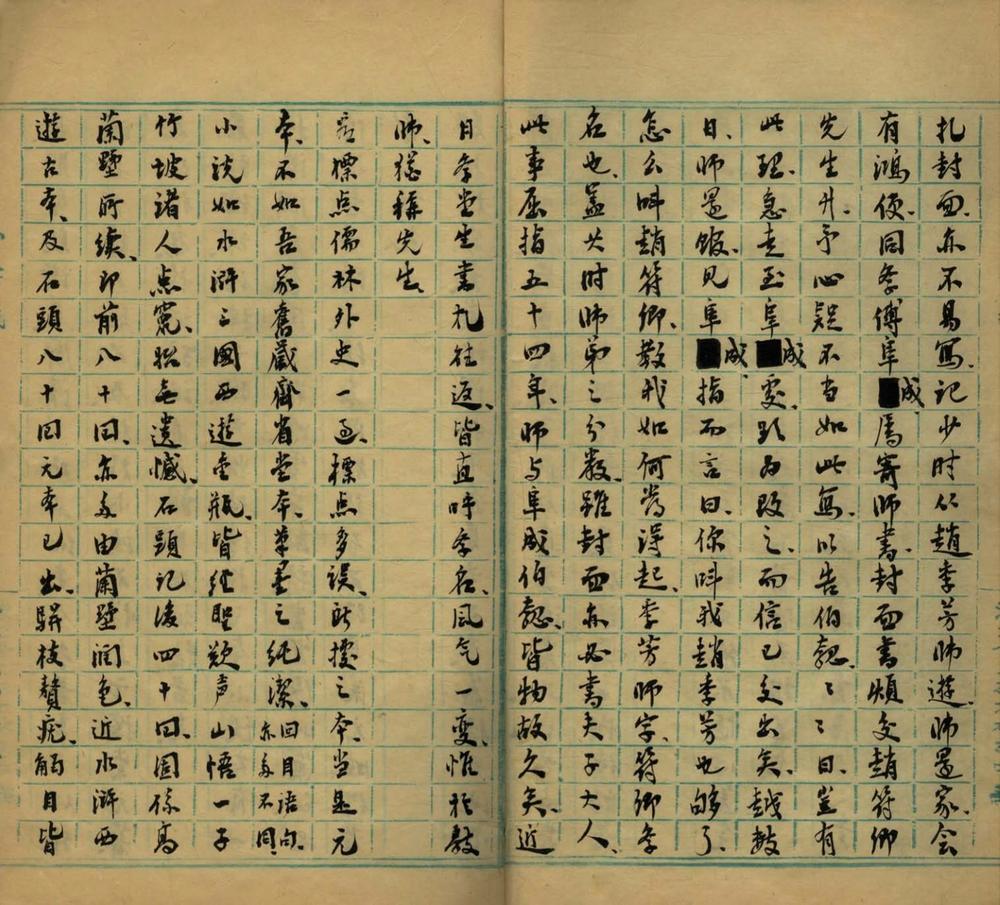 札封面亦不易寫、記少时从趙季芳师遊、师還家、会
有鴻便、同學傅阜■成焉寄师書、封面書煩交趙符卿
先生升、予心疑不当如此寫、以告伯愨、〻〻曰、豈有
此理、急走至阜■成處、为改之、而信已交出矣、越数
日、师還館、見阜■成指而言曰、你叫我趙季芳也够了、
怎么叫趙符卿、教我如何當得起、季芳师字、符卿學
名也、蓋其时师弟之分嚴、雖封面亦必書夫子大人、
此事屈指五十四年、师与阜成伯愨、皆物故久矣、近
日學堂生書札往返、皆直呼學名、风气一变、惟於教
师、猶稱先生、
看標点儒林外史一過、標点多誤、所據之本、当是元
本、不如吾家舊藏齊省堂本、筆墨之純潔、回目語句、亦多不同
小說如水滸三國西遊金瓶、皆經聖歎声山悟一子
竹坡諸人点竄、始無遺憾、石頭記後四十回、固係高
蘭墅所續、即前八十回、亦多由蘭墅润色、近水滸西
遊古本、及石頭八十回元本已出、駢枝贅疣、觸目皆